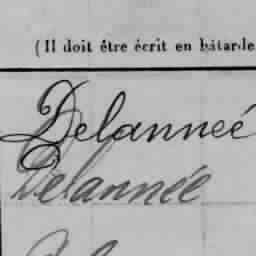 (Il doit être écrit en bâtarde
Delanneé
Delannée